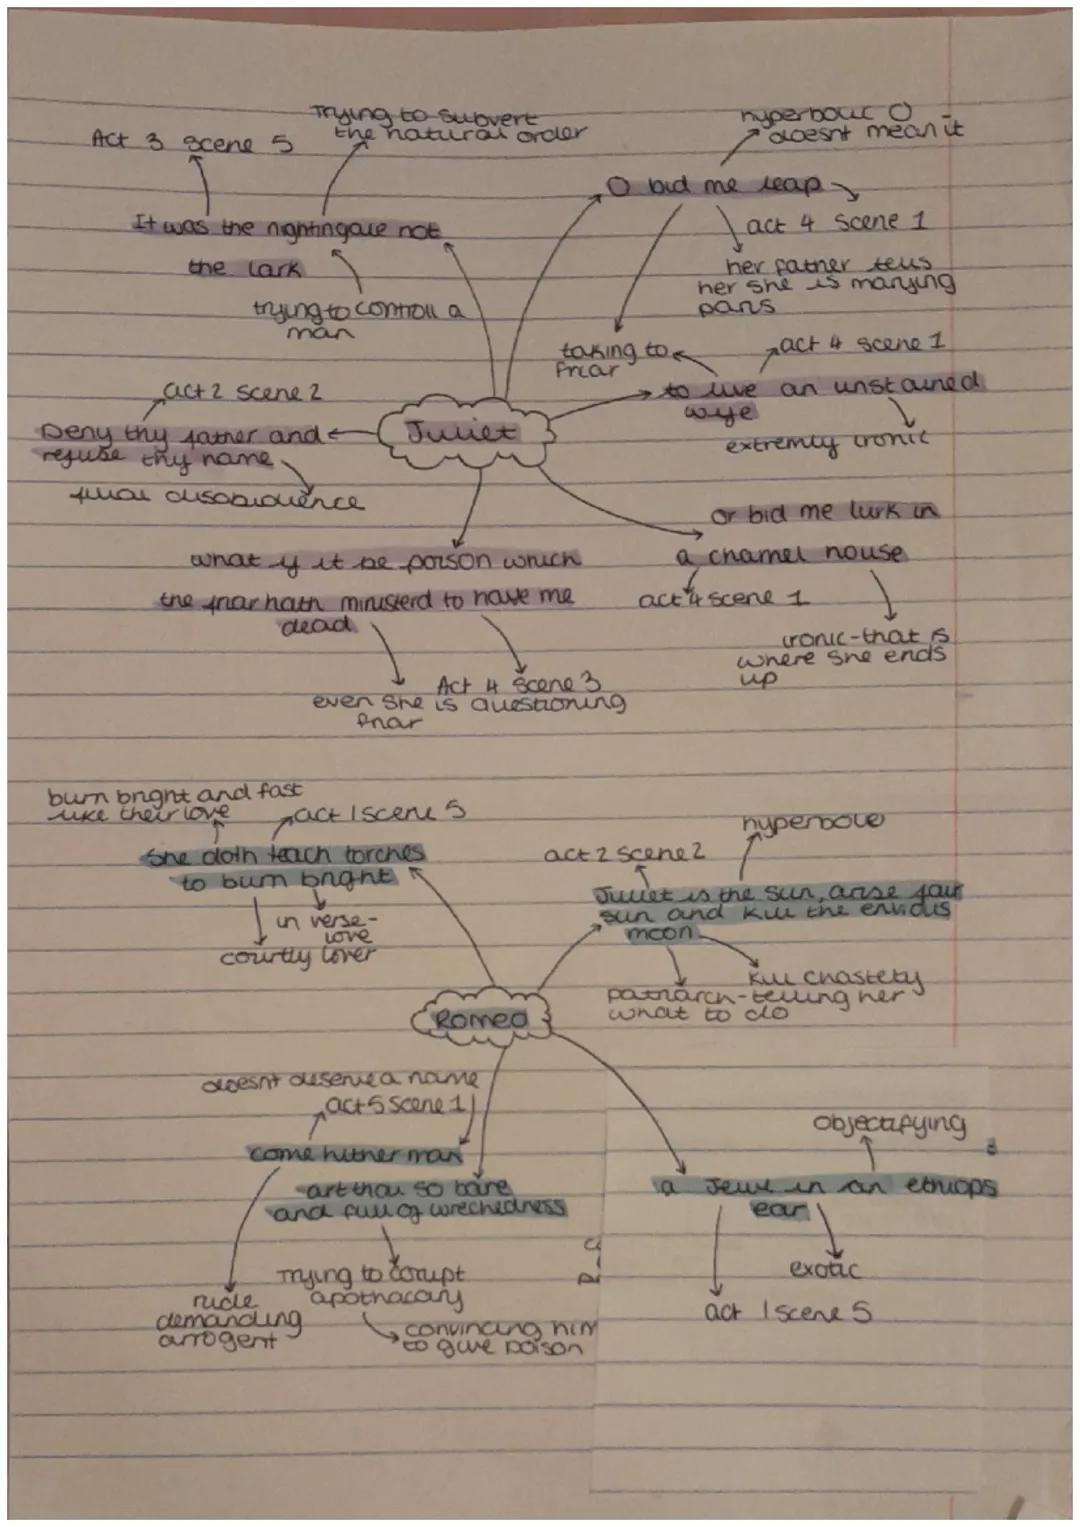 Trying to subvert
the natural order
Act 3 scene 5
It was the nightingale not
the lark
trying to controll a
man
hyperbolic O
doesnt mean it
O bid me leap
act 4 scene 1
her father tells
her she is marying
paris
talking to
friar
act 4 scene 1
to live an unstained
wife
extremly ironic
act 2 scene 2
Deny thy father and
refuse thy name
filial disobidience
Juliet
or bid me lurk in
a charnel house
act 4 scene 1
ironic-that is
where she ends
up
what if it be poison which
the friar hath ministerd to have me
dead
Act 4 scene 3
even she is questioning
friar
burn bright and fast
like their love
act 1 scene 5
She doth teach torches
to burn bright
in verse-
love
courtly lover
hyperbole
act 2 scene 2
Juliet is the sun, arise fair
sun and kill the envious
moon
kill chastety
patriarch-telling her
what to do
Romeo
doesnt deserve a name
act 5 scene 1
come hither man
art thou so bare
and full of wrechedness
Trying to corupt
apothacary
convincing him
to give poison
rude
demanding
arrogent
objectifying
a Jewl in an ethiops
ear
exotic
act 1 scene 5